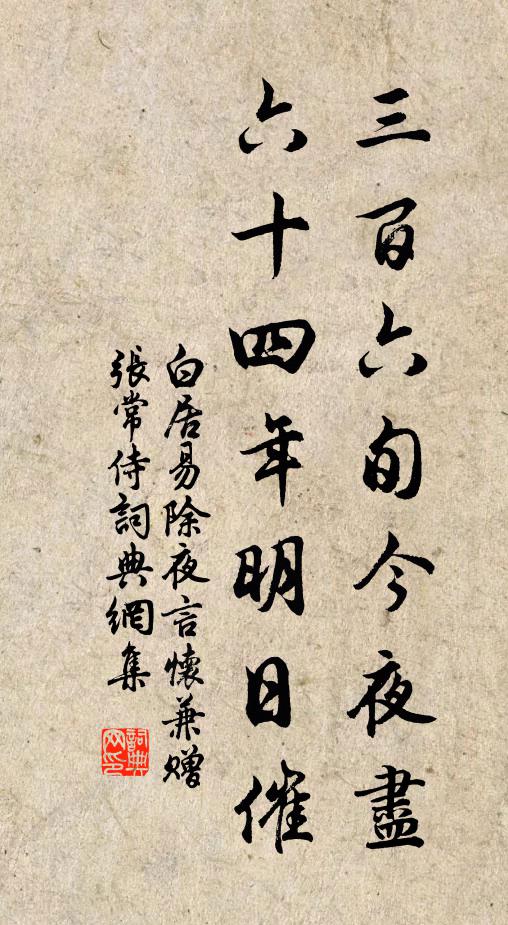 三百六旬今夜盡
六十四年明日催
白居易除夜言懷兼赠
張常侍詞典網集
詞典
网印